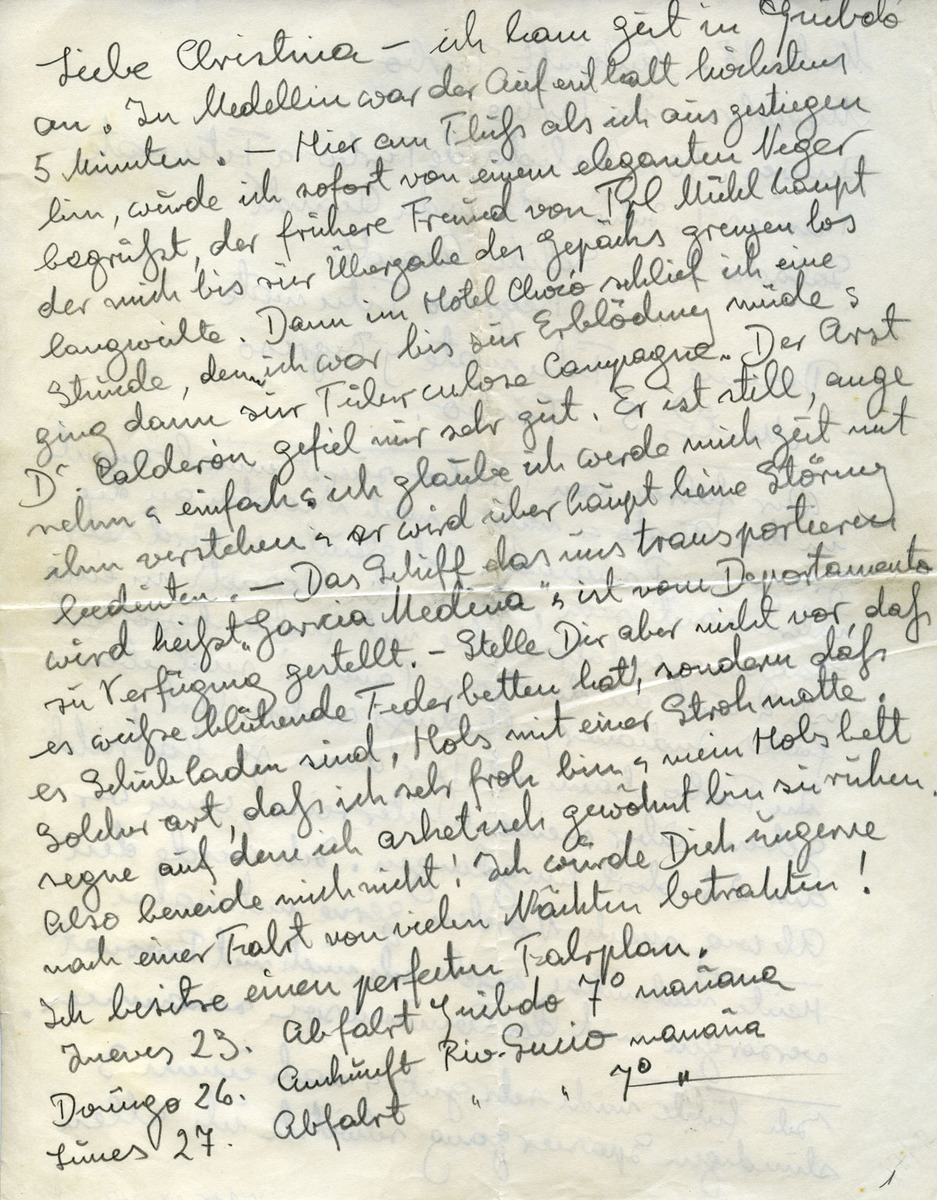 Liebe Christina – ich kam gut in Quibdó
an. In Medellin war der Aufenthalt höchstens
5 Minuten. – Hier am Fluß als ich aus gestiegen
bin, würde ich sofort von einem eleganten Neger
begrüßt, der frühere Freund von Mühlhaupt
der mich bis zür Übergabe des Gepäcks grenzenlos
langweilte. Dann im Hotel Chocó schlief ich eine
Stunde, denn ich war bis zür Erblödung müde &
ging dann zür Tüberculose Campagne. Der Arzt
Dr. Calderón gefiel mir sehr güt. Er ist still, ange
nehm & einfach & ich glaübe ich werde mich güt mit
ihm verstehen & er wird überhaüpt keine Störung
bedeuten. – Das Schiff das uns transportieren
wird heißt „Garcia Medina" & ist vom Departamento
zü Verfügung gestellt. – Stelle Dir aber nicht vor, daß
es weiße blühende Federbetten hat, sondern daß
es Schübladen sind, Holz mit einer Strohmatte.
Solcher art, daß ich sehr froh bin & mein Holzbett
segne auf dem ich asketisch gewöhnt bin zü rühen.
Also beneide mich nicht! Ich würde Dich üngerne
nach einer Fahrt von vielen Nächten betrakten!
Ich besitze einen perfecten Fahrplan.
Jueves 23. Abfahrt Quibdo 7º mañana
Domingo 26. Ankünft Rio-Sucio mañana
Lünes 27. Abfahrt " " 7º "
1